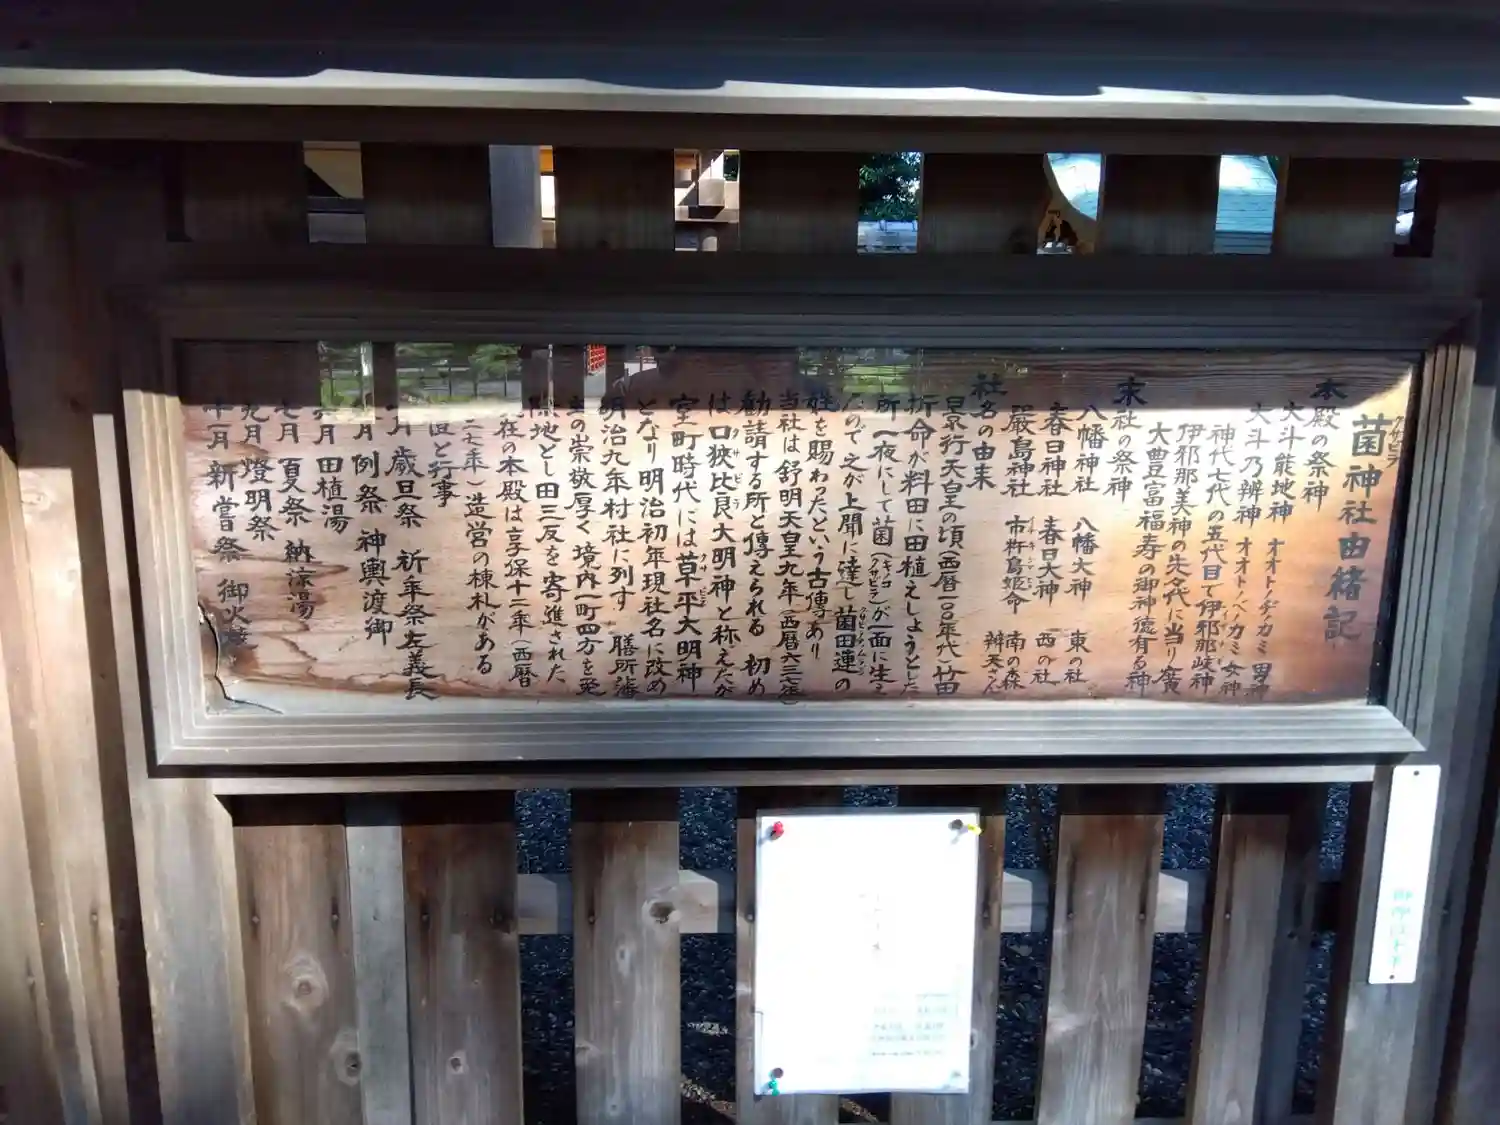 菌神社由緒記
クサビラ
本殿の祭神
大斗能地神 オオトノヂノカミ 男神
大斗乃辨神 オオトノベノカミ 女神
神代七代の五代目で伊邪那岐神
伊邪那美神の先名代に当り廣
大豊富福寿の御神徳有る神
末社の祭神
八幡神社 八幡大神 東の社
春日神社 春日大神 西の社
嚴島神社 市杵島姫命 南の森
辨天さん
社名の由来
景行天皇の頃(西暦一〇〇年代)竹田
折命が料田に田植えしようとした
所一夜にして菌(キノコ クサビラ)が一面に生え
たので之が上聞に達し菌田連の
姓を賜わったという古傳あり
当社は舒明天皇九年(西暦六三七年)
勧請する所と傳えられる 初め
は口狭比良大明神と称えたが
クサビラ
室町時代には草平大明神
クサビラ
となり明治初年現社名に改め
明治九年村社に列す 膳所藩
主の崇敬厚く境内一町四方を免
除地とし田三反を寄進された
在の本殿は享保十二年(西暦
二七年)造営の棟札がある
と行事
月 歳旦祭 祈年祭左義長
月 例祭 神輿渡御
月 田植湯
七月 夏祭 納涼湯
九月 燈明祭
十一月 新嘗祭 御火焚